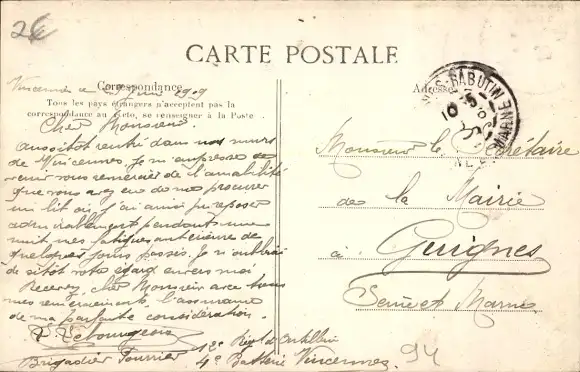 26
CARTE POSTALE
Correspondance
Adresse
Vincennes le juin 1909
Tous les pays étrangers n'acceptent pas la
correspondance au Recto, se renseigner à la Poste.
Cher Monsieur
Aussitôt rentré dans nos murs
de Vincennes, je m'empresse de
venir vous remercier de l'amabilité
que vous avez eu de me procurer
un lit où j'ai ainsi pu reposer
admirablement pendant une
nuit, mes fatigues antérieures de
quelques jours passés. Je n'oublierai
de sitôt votre égard envers moi.
Recevez, cher Monsieur avec tous
mes remerciements, l'assurance
de ma parfaite considération.
Lebourgeois
Brigadier Fourrier
12e Régt d'Artillerie
4e Batterie Vincennes
Monsieur le Secrétaire
de la Mairie
à Guignes
Seine et Marne
94
GUIGNES-RABUTIN
MARNE